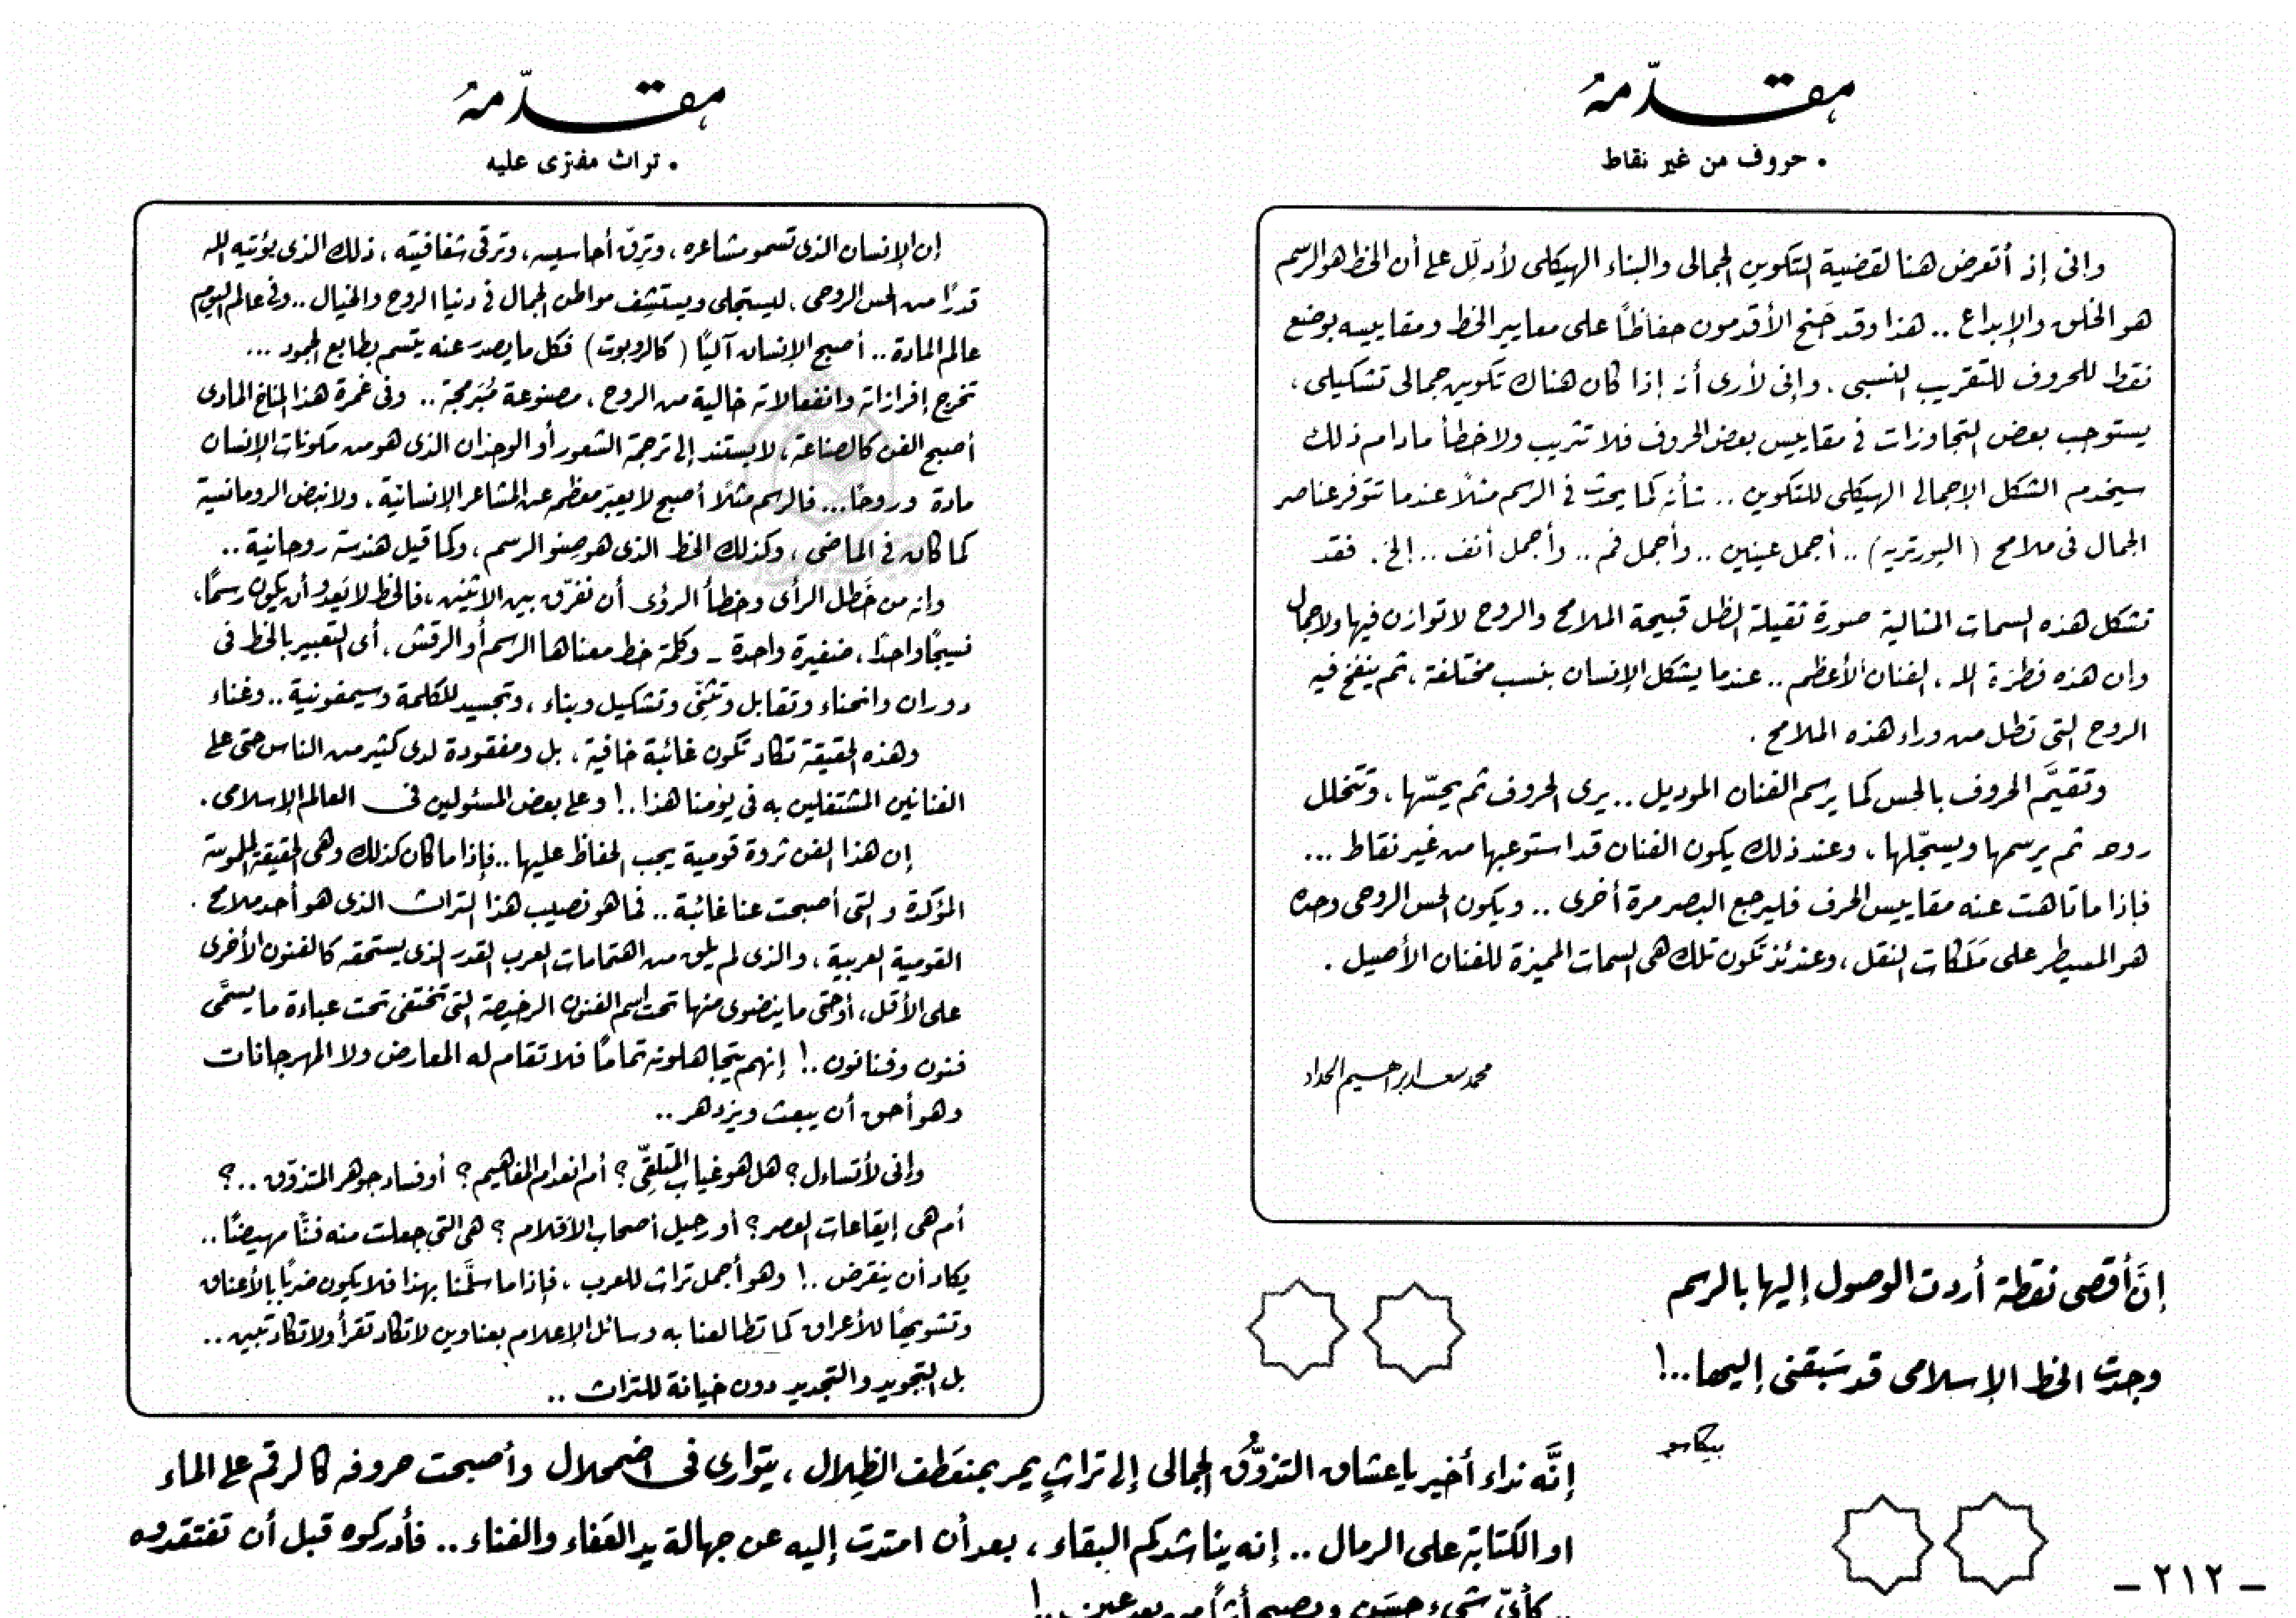 مقدّمة
• حروف من غير نقاط
وإنى إذ أتعرض هنا لقضية التكوين الجمالى والبناء الهيكلى لأدلّل على أن الخط هو الرسم
هو الخلق والإبداع .. هذا وقد جَنح الأقدمون حفاظًا على معايير الخط ومقاييسه بوضع
نقط للحروف للتقريب النسبى . وإنى لأرى أنه إذا كان هناك تكوين جمالى تشكيلى ،
يستوجب بعض التجاوزات فى مقاييس بعض الحروف فلا تثريب ولا خطأ مادام ذلك
سيخدم الشكل الإجمالى الهيكلى للتكوين .. شأنه كما يحدث فى الرسم مثلًا عندما تتوفر عناصر
الجمال فى ملامح ( البورتريه ) .. أجمل عينين .. وأجمل فم .. وأجمل أنف .. إلخ . فقد
تشكل هذه السمات المثالية صورة ثقيلة الظل قبيحة الملامح والروح لا توازن فيها ولا جمال
وان هذه فطرة الله ، الفنان الأعظم .. عندما يشكل الإنسان بنسب مختلفة ، ثم ينفخ فيه
الروح التى تطل من وراء هذه الملامح .
وتقيَّم الحروف بالحس كما يرسم الفنان الموديل .. يرى الحروف ثم يحسّها ، وتتخلل
روحه ثم يرسمها ويسجّلها ، وعند ذلك يكون الفنان قد استوعبها من غير نقاط ...
فإذا ما تاهت عنه مقاييس الحرف فليرجع البصر مرة أخرى .. ويكون الحس الروحى وحده
هو المسيطر على مَلَكات النقل ، وعندئذ تكون تلك هى السمات المميزة للفنان الأصيل .
محمد سعد ابراهيم الحداد
إنَّ أقصى نقطة أردت الوصول إليها بالرسم
وجدت الخط الإسلامى قد سَبقنى إليها ..!
بيكاسو
مقدّمة
• تراث مفترى عليه
إن الإنسان الذى تسمو مشاعره ، وترق أحاسيسه ، وترقى شفافيته ، ذلك الذى يؤتيه الله
قدرًا من الحس الروحى ، ليستجلى ويستشف مواطن الجمال فى دنيا الروح والخيال .. وفى عالم اليوم
عالم المادة .. أصبح الإنسان آليًا ( كالروبوت ) فكل ما يصدر عنه يتسم بطابع الجمود ...
تخرج إفرازاته وانفعالاته خالية من الروح ، مصنوعة مُبَرمجة .. وفى غمرة هذا المناخ المادى
أصبح الفن كالصناعة ، لا يستند إلى ترجمة الشعور أو الوجدان الذى هو من مكونات الإنسان
مادة وروحًا ... فالرسم مثلًا أصبح لا يعبّر معظمه عن المشاعر الإنسانية . ولا نبض الرومانسية
كما كان فى الماضى ، وكذلك الخط الذى هو صِنو الرسم ، وكما قيل هندسة روحانية ..
وانه من خَطل الرأى وخطأ الرؤى أن نفرّق بين الاثنين ، فالخط لا يَعدو أن يكون رسمًا ،
نسيجًا واحدًا ، ضفيرة واحدة - وكلمة خط معناها الرسم أو الرقش . أى التعبير بالخط فى
دوران وانحناء وتقابل وتثنِّى وتشكيل وبناء ، وتجسيد للكلمة وسيمفونية .. وغناء
وهذه الحقيقة تكاد تكون غائبة خافية ، بل ومفقودة لدى كثير من الناس حتى على
الفنانين المشتغلين به فى يومنا هذا .! وعلى بعض المسئولين فى العالم الإسلامى .
إن هذا الفن ثروة قومية يجب الحفاظ عليها .. فإذا ما كان كذلك وهى الحقيقة الملموسة
المؤكدة والتى أصبحت عنا غائبة .. فما هو نصيب هذا التراث الذى هو أحد ملامح .
القومية العربية ، والذى لم يلق من اهتمامات العرب القدر الذى يستحقه كالفنون الأخرى
على الأقل ، أو حتى ما ينضوى منها تحت اسم الفنون الرخيصة التى تختفى تحت عباءة ما يسمَّى
فنون وفنانون .! إنهم يتجاهلونه تمامًا فلا تقام له المعارض ولا المهرجانات
وهو أحق أن يبعث ويزدهر ..
وإنى لأتساءل ؟ هل هو غياب المتلقِّى ؟ أم انعدام المفاهيم ؟ أو فساد جوهر المتذوّق ..؟
أم هى إيقاعات العصر ؟ أو رحيل أصحاب الأقلام ؟ هى التى جعلت منه فنًّا مهيضًا ..
يكاد أن ينقرض .! وهو أجمل تراث للعرب ، فإذا ما سلَّمنا بهذا فلا يكون ضربًا بالأعناق
وتشويهًا للأعراق كما تطالعنا به وسائل الإعلام بعناوين لا تكاد تقرأ ولا تكاد تبين ..
بل التجويد والتجديد دون خيانة للتراث ..
إنَّه نداء أخير يا عشاق التذوُّق الجمالى إلى تراثٍ يمر بمنعَطف الظِلال ، يتوارى فى اضمحلال وأصبحت حروفه كالرقم على الماء
او الكتابة على الرمال .. إنه يناشدكم البقاء ، بعد أن امتدت إليه عن جهالة يد العَفاء والفناء .. فأدركوه قبل أن تفتقدوه
.. كأىّ شىء حسَن ويصبح أثرًا من بعد عين ..!
- ٢١٢ -